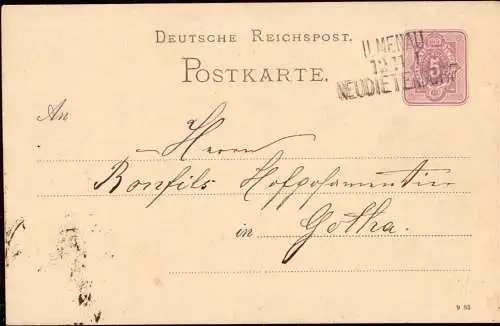 DEUTSCHE REICHSPOST.
POSTKARTE.
ILMENAU
NEUDIETENDORF
5
An
Herrn
Bonfils Hofposamentier
in Gotha.
9 83